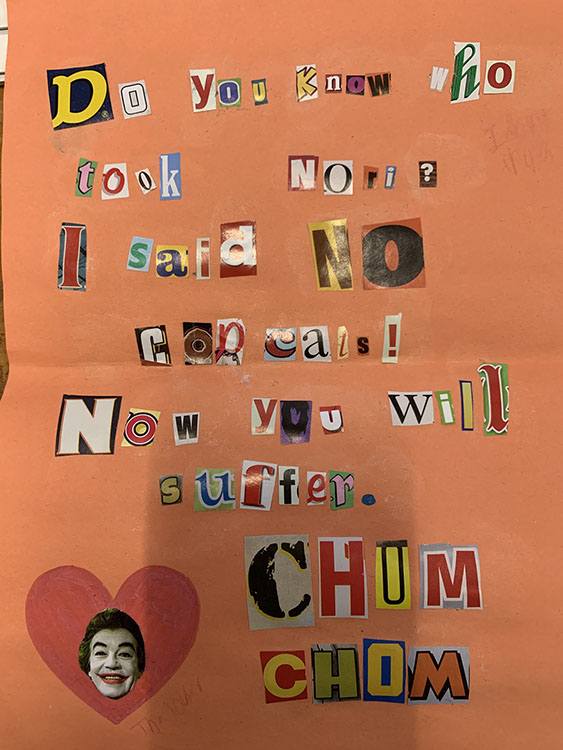 Do you Know who
took NOri?
I said NO
Copcats!
Now you will
suffer.
CHUM
CHOM